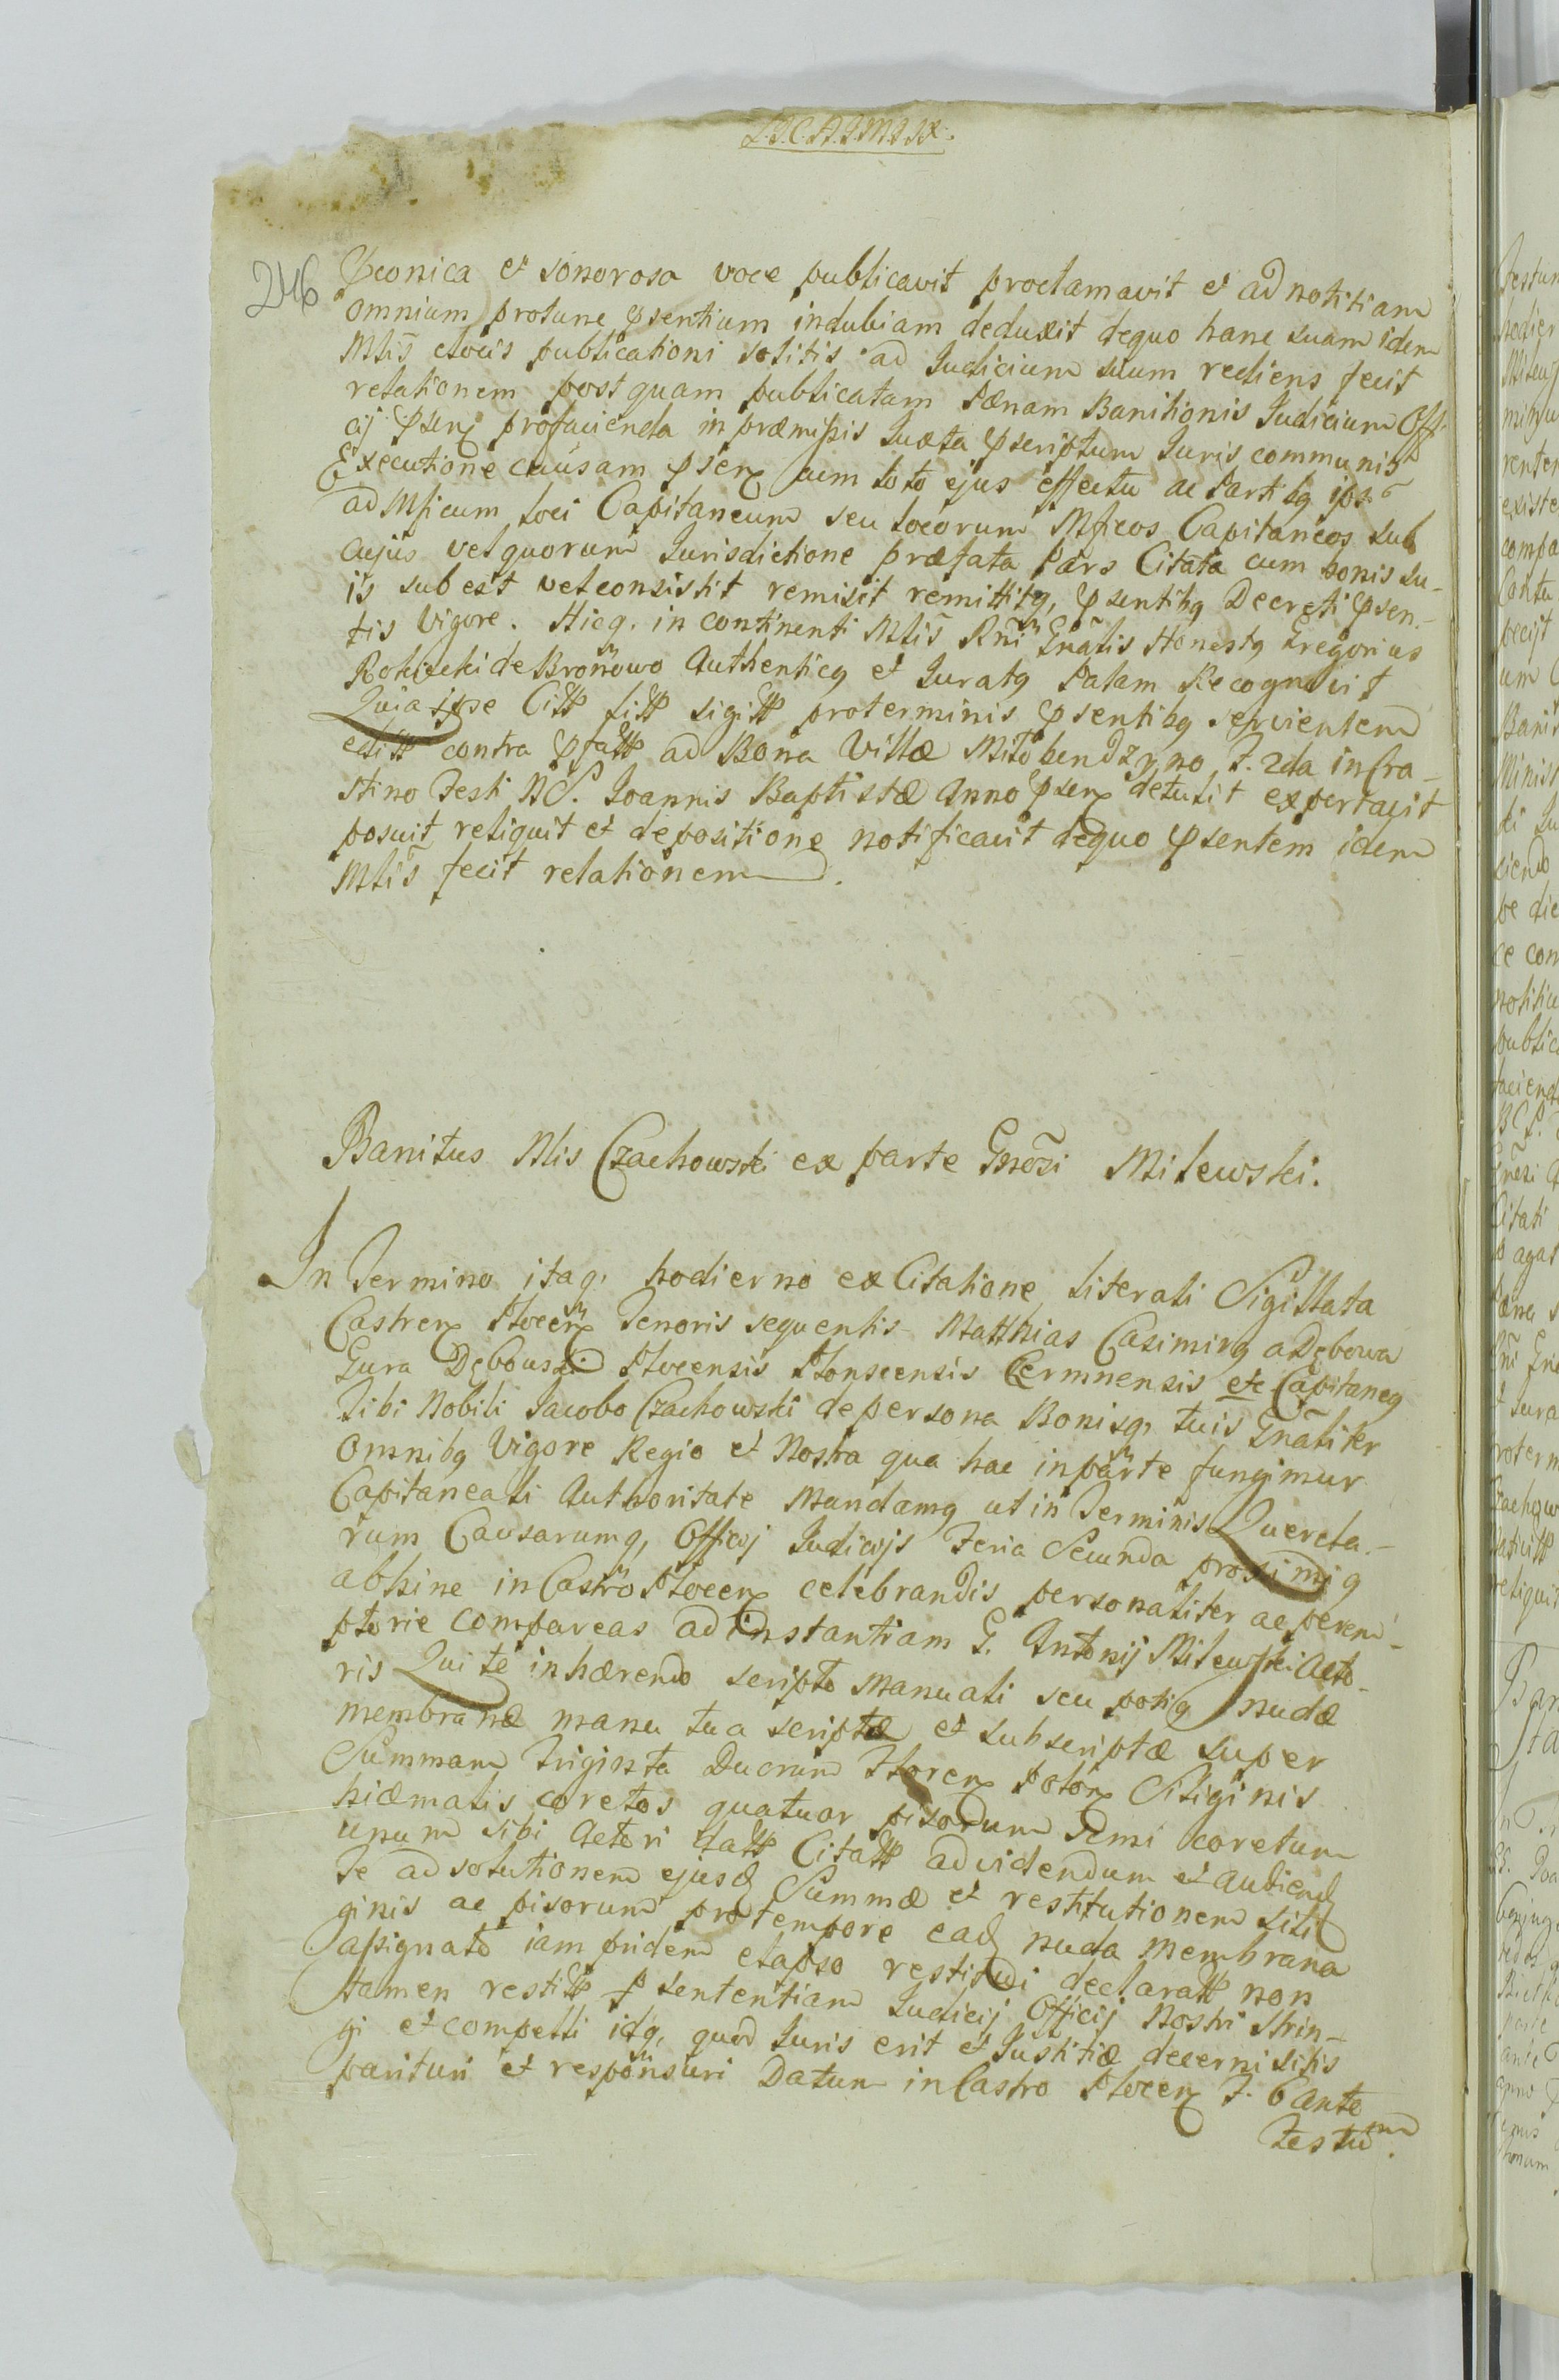 L.D.C.A.J.M.J.X.
246
Preonica et sonorosa voce publicavit proclamavit et ad notitiam
omnium protunc psentium indubiam deduxit dequo hanc suam idem
Mlis e locis publicationi solitis ad Judicium suum rediens fecit
relationem post quam publicatam Pænam Banitionis Judicium Offi
cij psens profacienda in præmissis Juxta pscriptum Juris communis
Executione causam psens cum toto ejus effectu ac Partibq ipsis
ad Mficum loci Capitaneum seu locorum Mficos Capitaneos sub
cujus vel quorum Jurisdictione præfata Pars Citata cum bonis su-
is subest vel consistit remisit remittitq, psentibq Decreti psen-
tis Vigore. Hicq. in continenti Mlis Rni Gnalis Honestq Gregorius
Rokicki de Bronowo Authenticq et Juratq Palam Recognovit
Quia ipse Citt litt sigitt proterminis psentibq servientem
editt contra pfatt ad Bona Villæ Milobendzyno F. 2da infra-
Stivo Festi N S. Joannis Baptistæ Anno psens detulit exportavit
posuit reliquit et depositione notificavit dequo psentem idem
Mlis fecit relationem.
Banitus Nlis Czachowski ex parte Gnosi Milewski.
In Termino itaq. hodierno ex Citatione literali Sigillata
Castren Plocen Tenoris sequentis Matthias Casimirq a Dębowa
Gura Dębowski Plocensis Plonscensis Cermnensis etc Capitaneq
Tibi Nobili Jacobo Czachowski de persona Bonisq, tuis Gnaliter
omnibq Vigore Regio et Nostra qua hac in parte fungimur
Capitaneali Authoritate Mandamq ut in Terminis Querela-
rum Causarumq, Officij Judicijs Feria Secunda proximiq
abhinc in Castro Plocen celebrandis personaliter ac perem-
ptorie compareas ad instantiam G. Antonij Milewski Acto-
ris Qui te inhærendo scripto Manuali seu potiq nudæ
membranæ manu tua scriptæ et subscriptæ super
Summam Triginta Duorum Floren Polon Siliginis
hiæmalis coretos quatuor pisorum Semi coretum
unum sibi Actori datt Citatt ad videndum et audiend
Te ad solutionem ejusd Summæ et restitutionem sili
ginis ac pisorum pro tempore ead nuda membrana
assignato iam pridem elapso restitui declaratt non
tamen restitt p sententiam Judicij Officij Nostri Strin-
gi et compelli idq, quod Juris erit et Justitiæ decerni sitis
parituri et responsuri Datum in Castro Plocen F. 6 ante
Festum